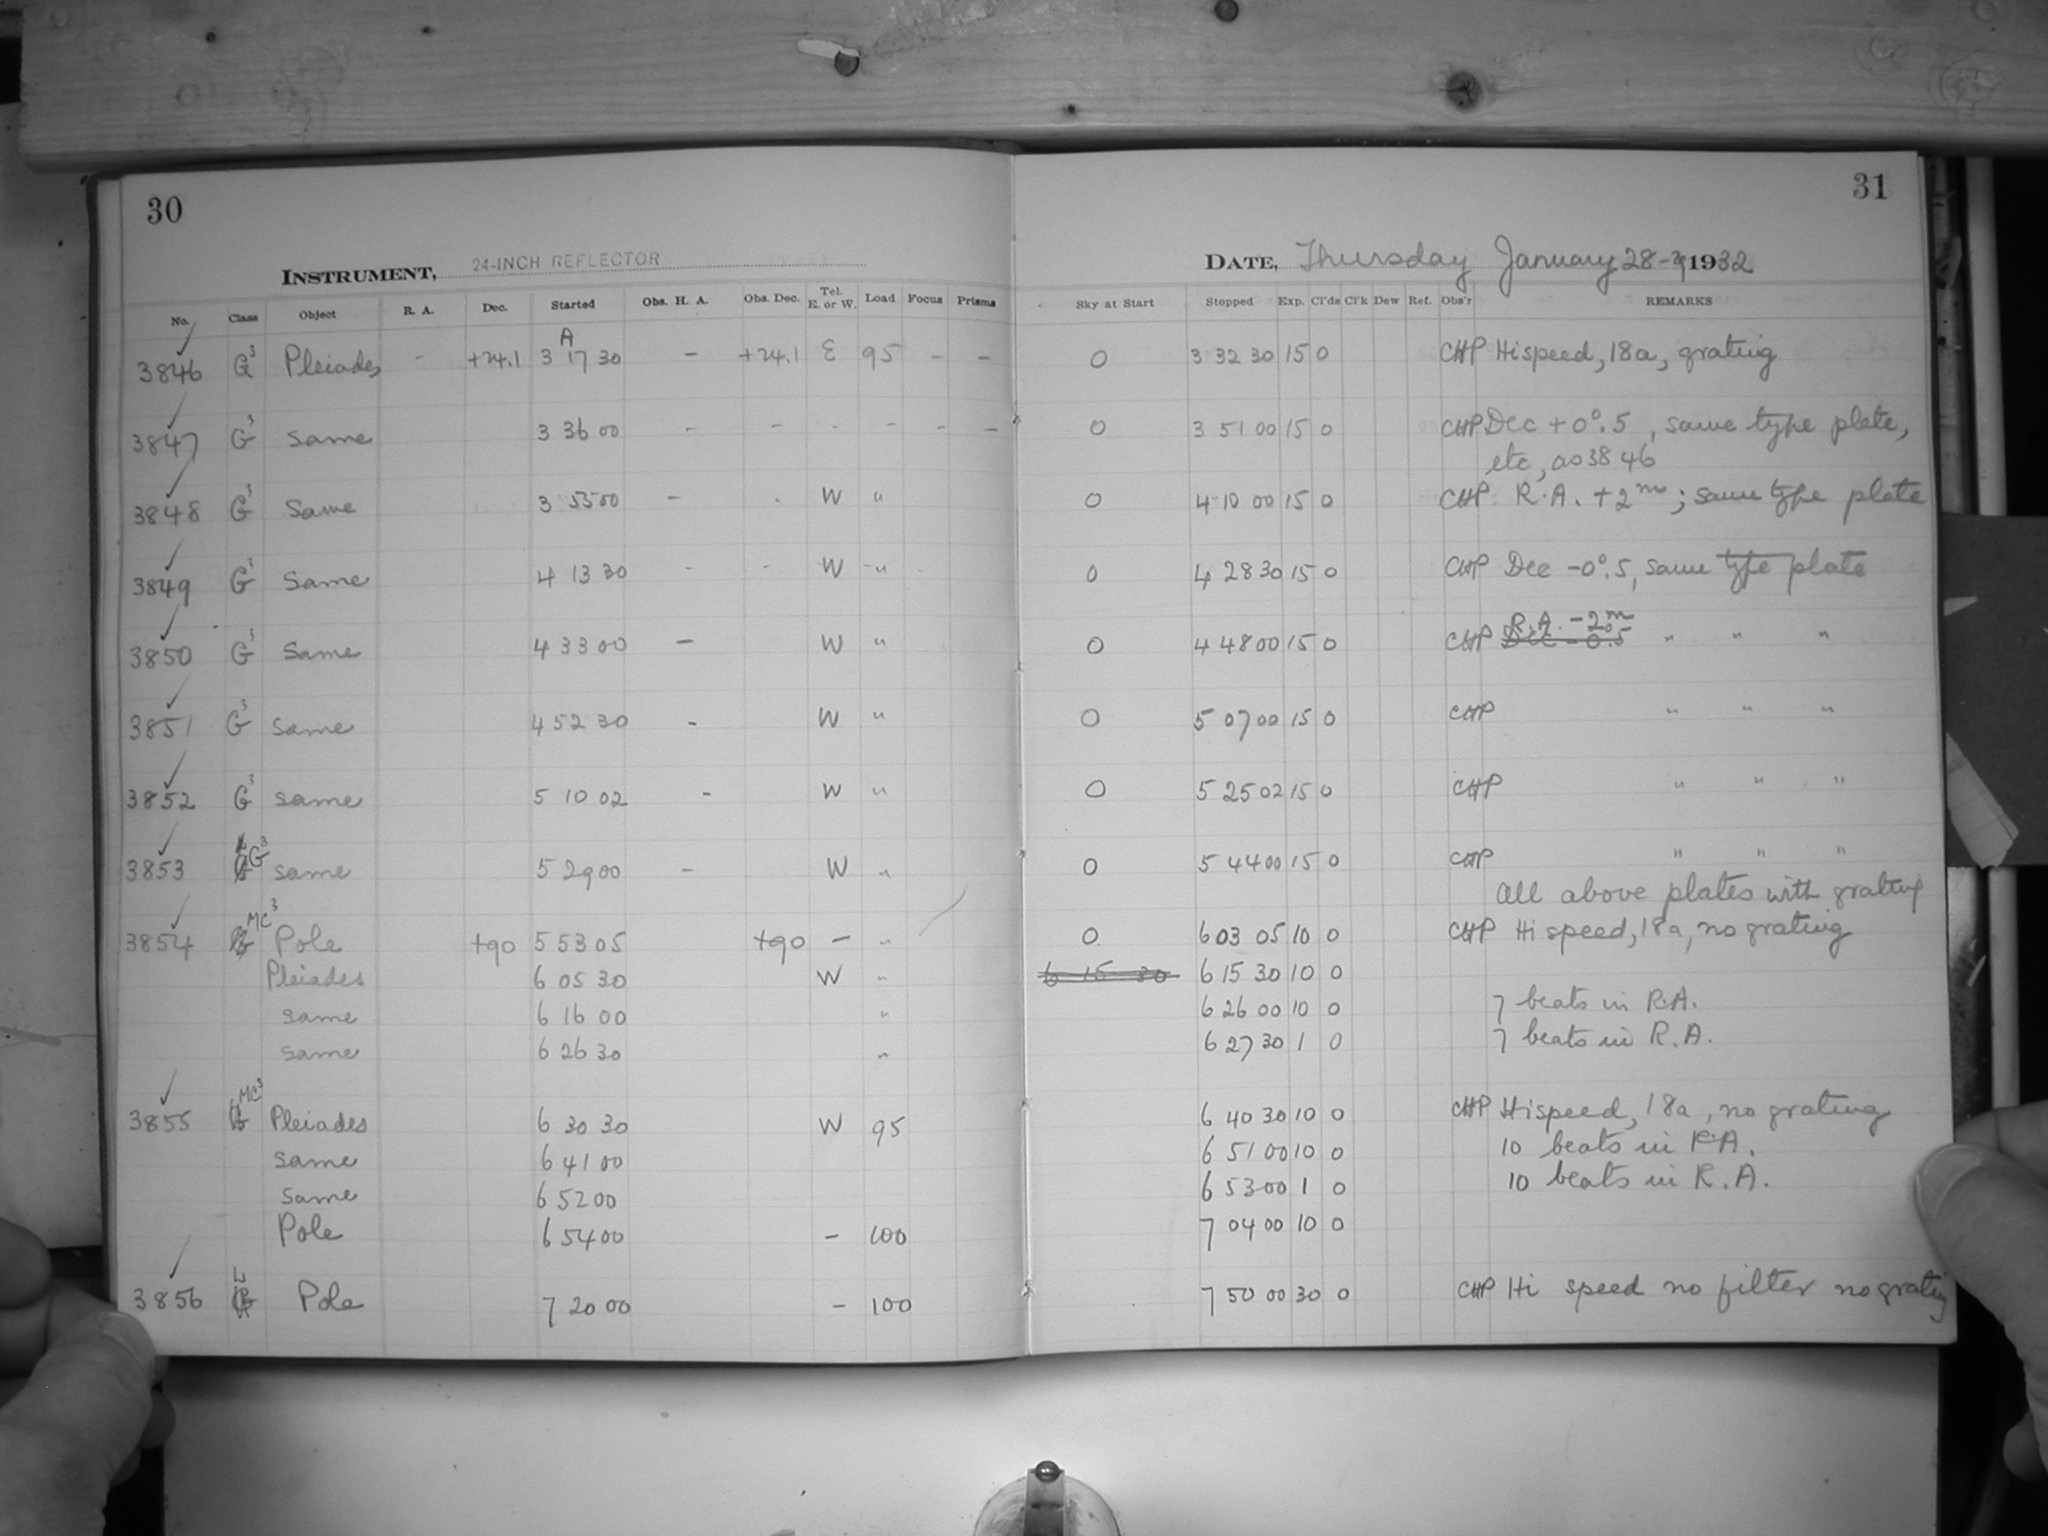 30
31
INSTRUMENT, 24-INCH REFLECTOR
DATE, Thursday January 28-29 1932
No. Class Object R. A. Dec. Started Obs. H. A. Obs. Dec. Tel. E. or W. Load Focus Prisms Sky at Start Stopped Exp. Cl'ds Cl'k Dew Ref. Obs'r REMARKS
A
3846 G³ Pleiades - +24.1 3 17 30 - +24.1 E 95 - - 0 3 32 30 15 0 CHP Hispeed, 18a, grating
3847 G³ same 3 36 00 - - - - - - 0 3 51 00 15 0 CHP Dec + 0°.5, same type plate,
etc, as 3846
3848 G³ Same 3 55 00 - W " 0 4 10 00 15 0 CHP R.A. +2ᵐ; same type plate
3849 G³ Same 4 13 30 - - W " 0 4 28 30 15 0 CHP Dec -0°.5, same type plate
R.A. -2ᵐ
3850 G³ Same 4 33 00 - W " 0 4 48 00 15 0 CHP Dec -0.5 " " "
3851 G³ same 4 52 30 - W " 0 5 07 00 15 0 CHP " " "
3852 G³ same 5 10 02 - W " 0 5 25 02 15 0 CHP " " "
3853 G³ same 5 29 00 - W " 0 5 44 00 15 0 CHP " " "
All above plates with grating
3854 MC³ Pole +90 5 53 05 +90 - " 0 6 03 05 10 0 CHP Hispeed, 18a, no grating
Pleiades 6 05 30 W " 6 15 30 6 15 30 10 0
same 6 16 00 " 6 26 00 10 0 7 beats in R.A.
same 6 26 30 " 6 27 30 1 0 7 beats in R.A.
3855 MC³ Pleiades 6 30 30 W 95 6 40 30 10 0 CHP Hispeed, 18a, no grating
same 6 41 00 6 51 00 10 0 10 beats in R.A.
same 6 52 00 6 53 00 1 0 10 beats in R.A.
Pole 6 54 00 - 100 7 04 00 10 0
3856 Pole 7 20 00 - 100 7 50 00 30 0 CHP Hi speed no filter no grating